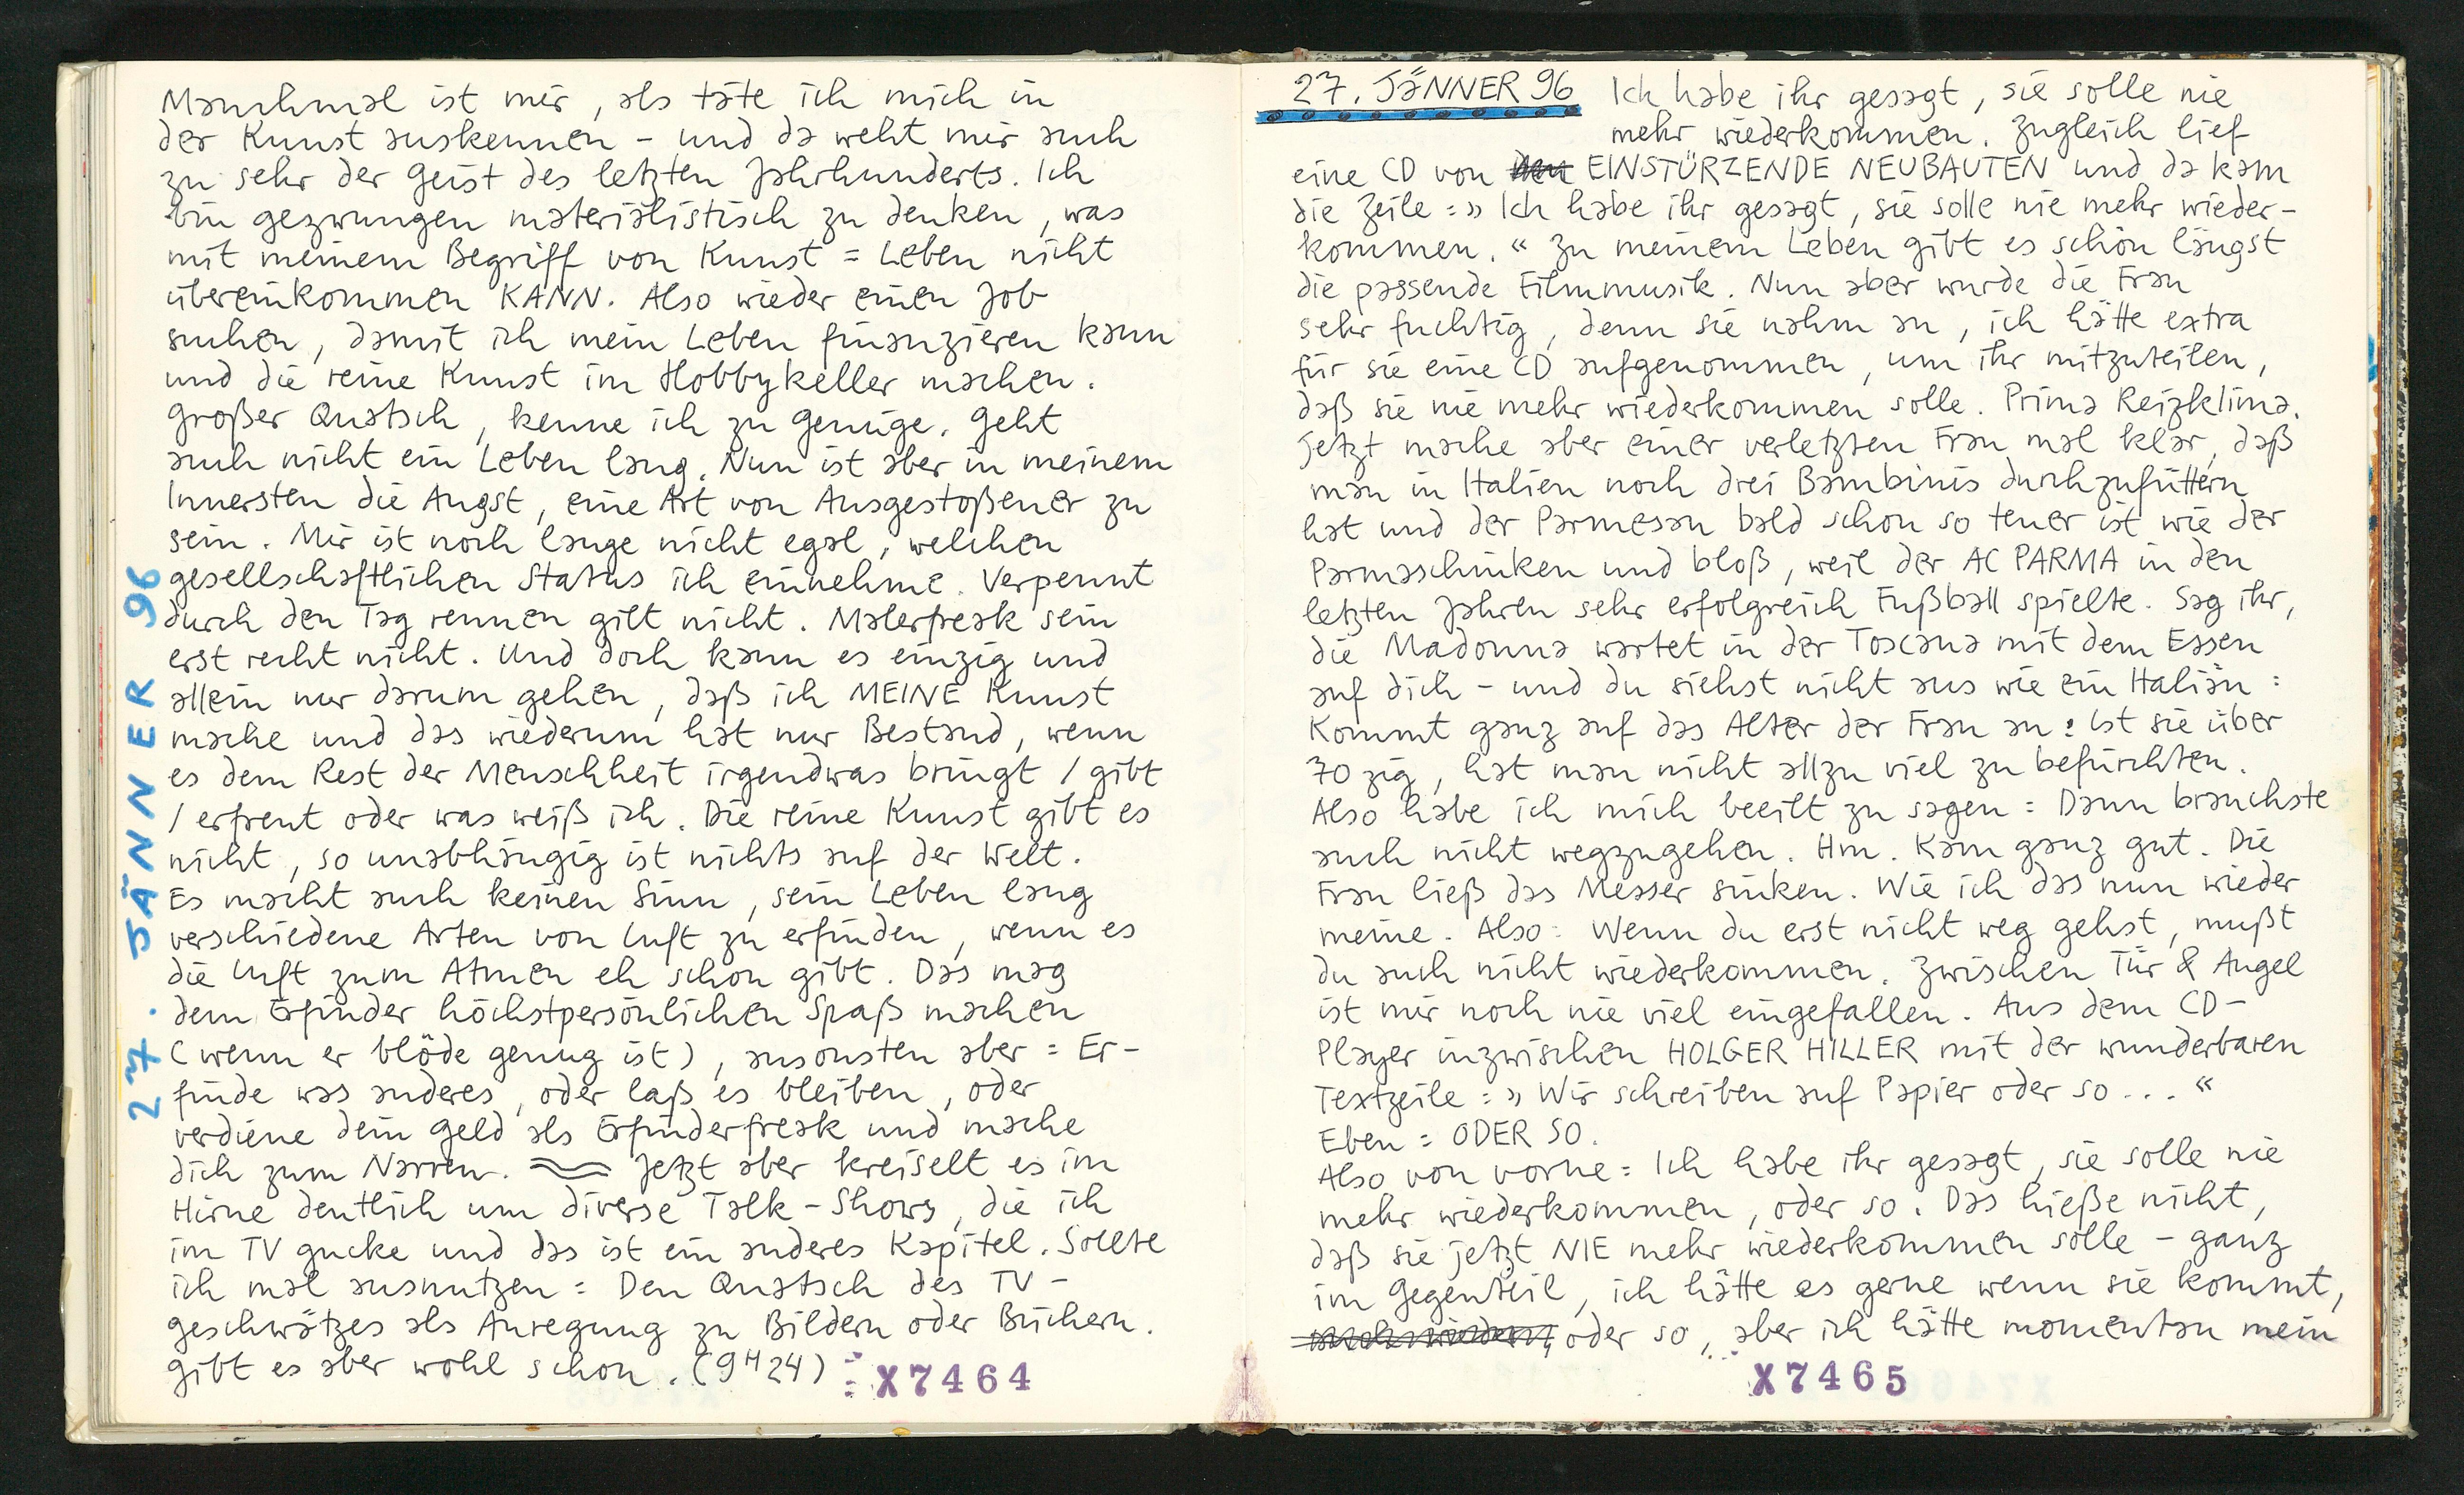 27. JÄNNER 96
Manchmal ist mir, als täte ich mich in
der Kunst auskennen - und da weht mir auch
zu sehr der Geist des letzten Jahrhunderts. Ich
bin gezwungen materialistisch zu denken, was
mit meinem Begriff von Kunst = Leben nicht
übereinkommen KANN. Also wieder einen Job
suchen, damit ich mein Leben finanzieren kann
und die reine Kunst im Hobbykeller machen.
Großer Quatsch, kenne ich zu Genüge. Geht
auch nicht ein Leben lang. Nun ist aber in meinem
Innersten die Angst, eine Art von Ausgestoßener zu
sein. Mir ist noch lange nicht egal, welchen
gesellschaftlichen Status ich einnehme. Verpennt
durch den Tag rennen gilt nicht. Malerfreak sein
erst recht nicht. Und doch kann es einzig und
allein nur darum gehen, daß ich MEINE Kunst
mache und das wiederum hat nur Bestand, wenn
es dem Rest der Menschheit irgendwas bringt / gibt
/ erfreut oder was weiß ich. Die reine Kunst gibt es
nicht, so unabhängig ist nichts auf der Welt.
Es macht auch keinen Sinn, sein Leben lang
verschiedene Arten von Luft zu erfinden, wenn es
die Luft zum Atmen eh schon gibt. Das mag
dem Erfinder höchstpersönlichen Spaß machen
(wenn er blöde genug ist), ansonsten aber: Er-
finde was anderes, oder laß es bleiben, oder
verdiene dein Geld als Erfinderfreak und mache
dich zum Narren. Jetzt aber kreiselt es im
Hirne deutlich um diverse Talk-Shows, die ich
im TV gucke und das ist ein anderes Kapitel. Sollte
ich mal ausnutzen: Den Quatsch des TV-
geschwätzes als Anregung zu Bildern oder Büchern.
Gibt es aber wohl schon. (9H24)
X7464
27. JÄNNER 96 Ich habe ihr gesagt, sie solle nie
mehr wiederkommen. Zugleich lief
eine CD von den EINSTÜRZENDE NEUBAUTEN und da kam
die Zeile: »Ich habe ihr gesagt, sie solle nie mehr wieder-
kommen.“ Zu meinem Leben gibt es schon längst
die passende Filmmusik. Nun aber wurde die Frau
sehr fuchtig, denn sie nahm an, ich hätte extra
für sie eine CD aufgenommen, um ihr mitzuteilen,
daß sie nie mehr wiederkommen solle. Prima Reizklima.
Jetzt mache aber einer verletzten Frau mal klar, daß
man in Italien noch drei Bambinis durchzufüttern
hat und der Parmesan bald schon so teuer ist wie der
Parmaschinken und bloß, weil der AC PARMA in den
letzten Jahren sehr erfolgreich Fußball spielte. Sag ihr,
die Madonna wartet in der Toscana mit dem Essen
auf dich - und du siehst nicht aus wie ein Italiän:
Kommt ganz auf das Alter der Frau an: Ist sie über
70zig, hat man nicht allzu viel zu befürchten.
Also habe ich mich beeilt zu sagen: Dann brauchste
auch nicht wegzugehen. Hm. Kam ganz gut. Die
Frau ließ das Messer sinken. Wie ich das nun wieder
meine. Also: Wenn du erst nicht weg gehst, mußt
du auch nicht wiederkommen. Zwischen Tür & Angel
ist mir noch nie viel eingefallen. Aus dem CD-
Player inzwischen HOLGER HILLER mit der wunderbaren
Textzeile: »Wir schreiben auf Papier oder so...“
Eben: ODER SO.
Also von vorne: Ich habe ihr gesagt, sie solle nie
mehr wiederkommen, oder so. Das hieße nicht,
daß sie jetzt NIE mehr wiederkommen solle - ganz
im Gegenteil, ich hätte es gerne wenn sie kommt,
oder so, aber ich hätte momentan mein
X7465